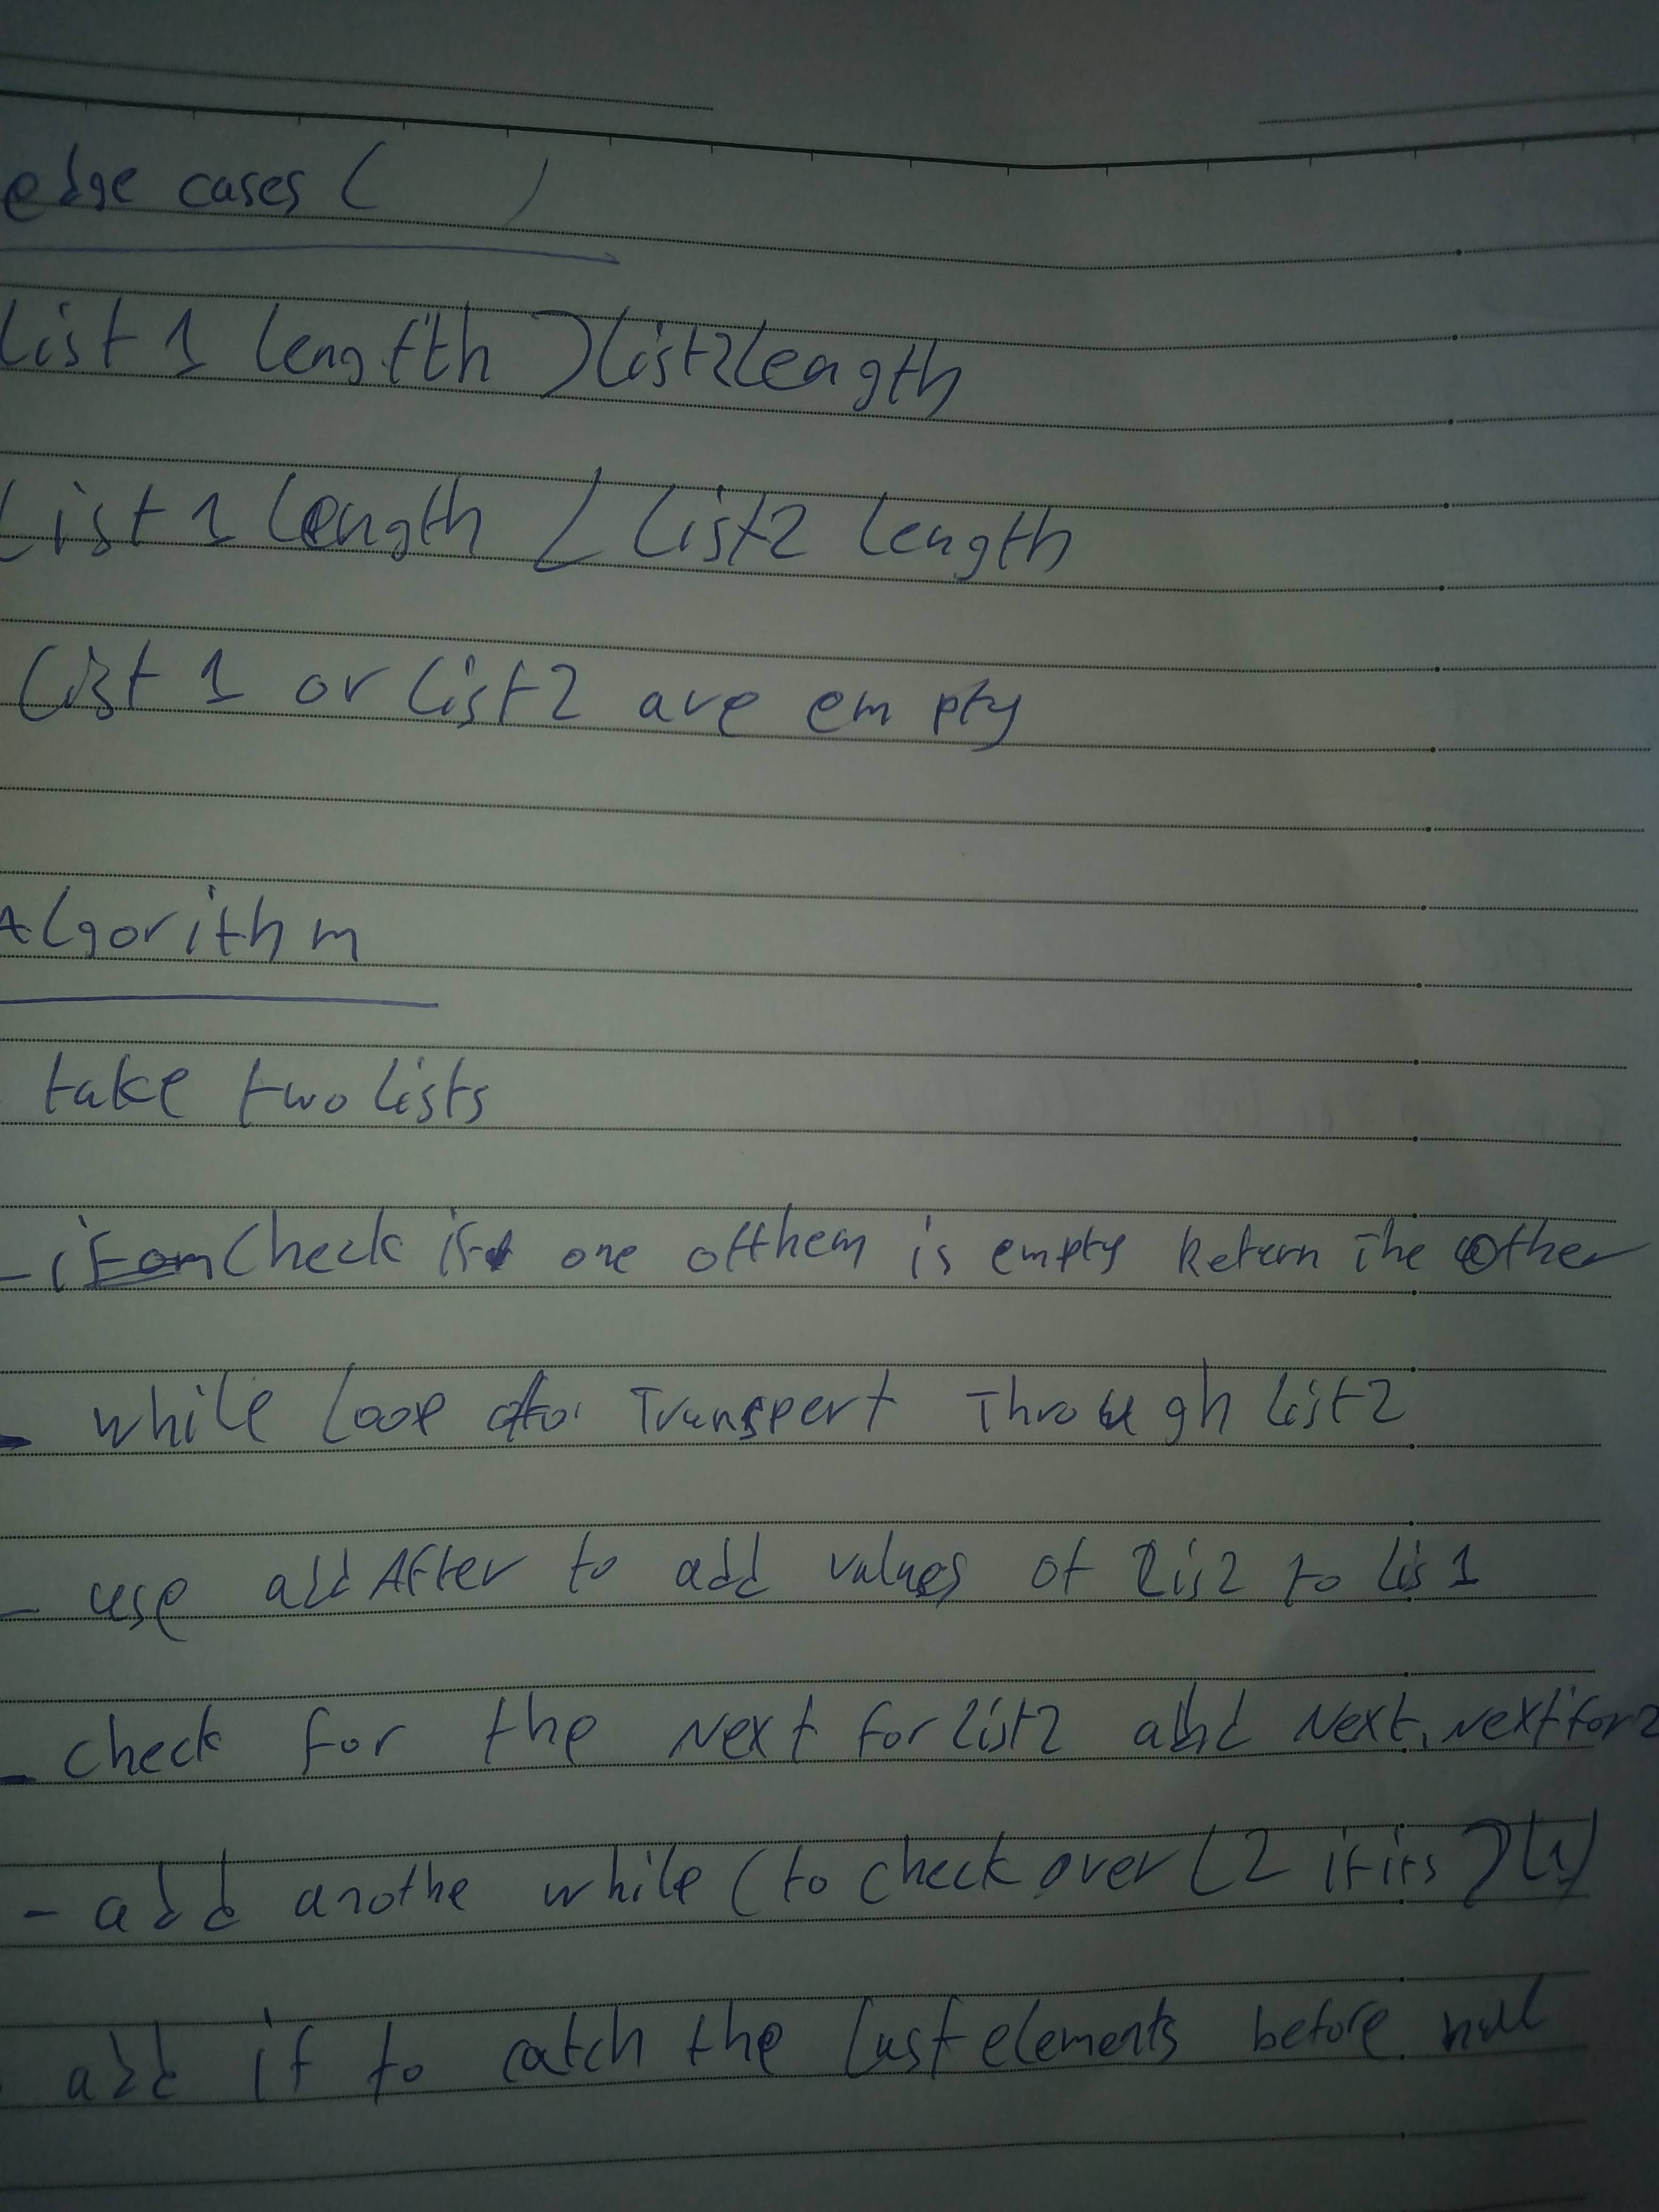 edge cases ( )
List 1 length > list2 length
List 1 length < list2 length
List 1 or list2 are empty
Algorithm
take two lists
- Check if one of them is empty Return The other
- while loop to Transpert Through list2
- use addAfter to add values of lis2 to lis1
- check for the Next for list2 and Next.Next for 2
- add anothe while (to check over L2 if its > L1)
add if to catch the last elements before null